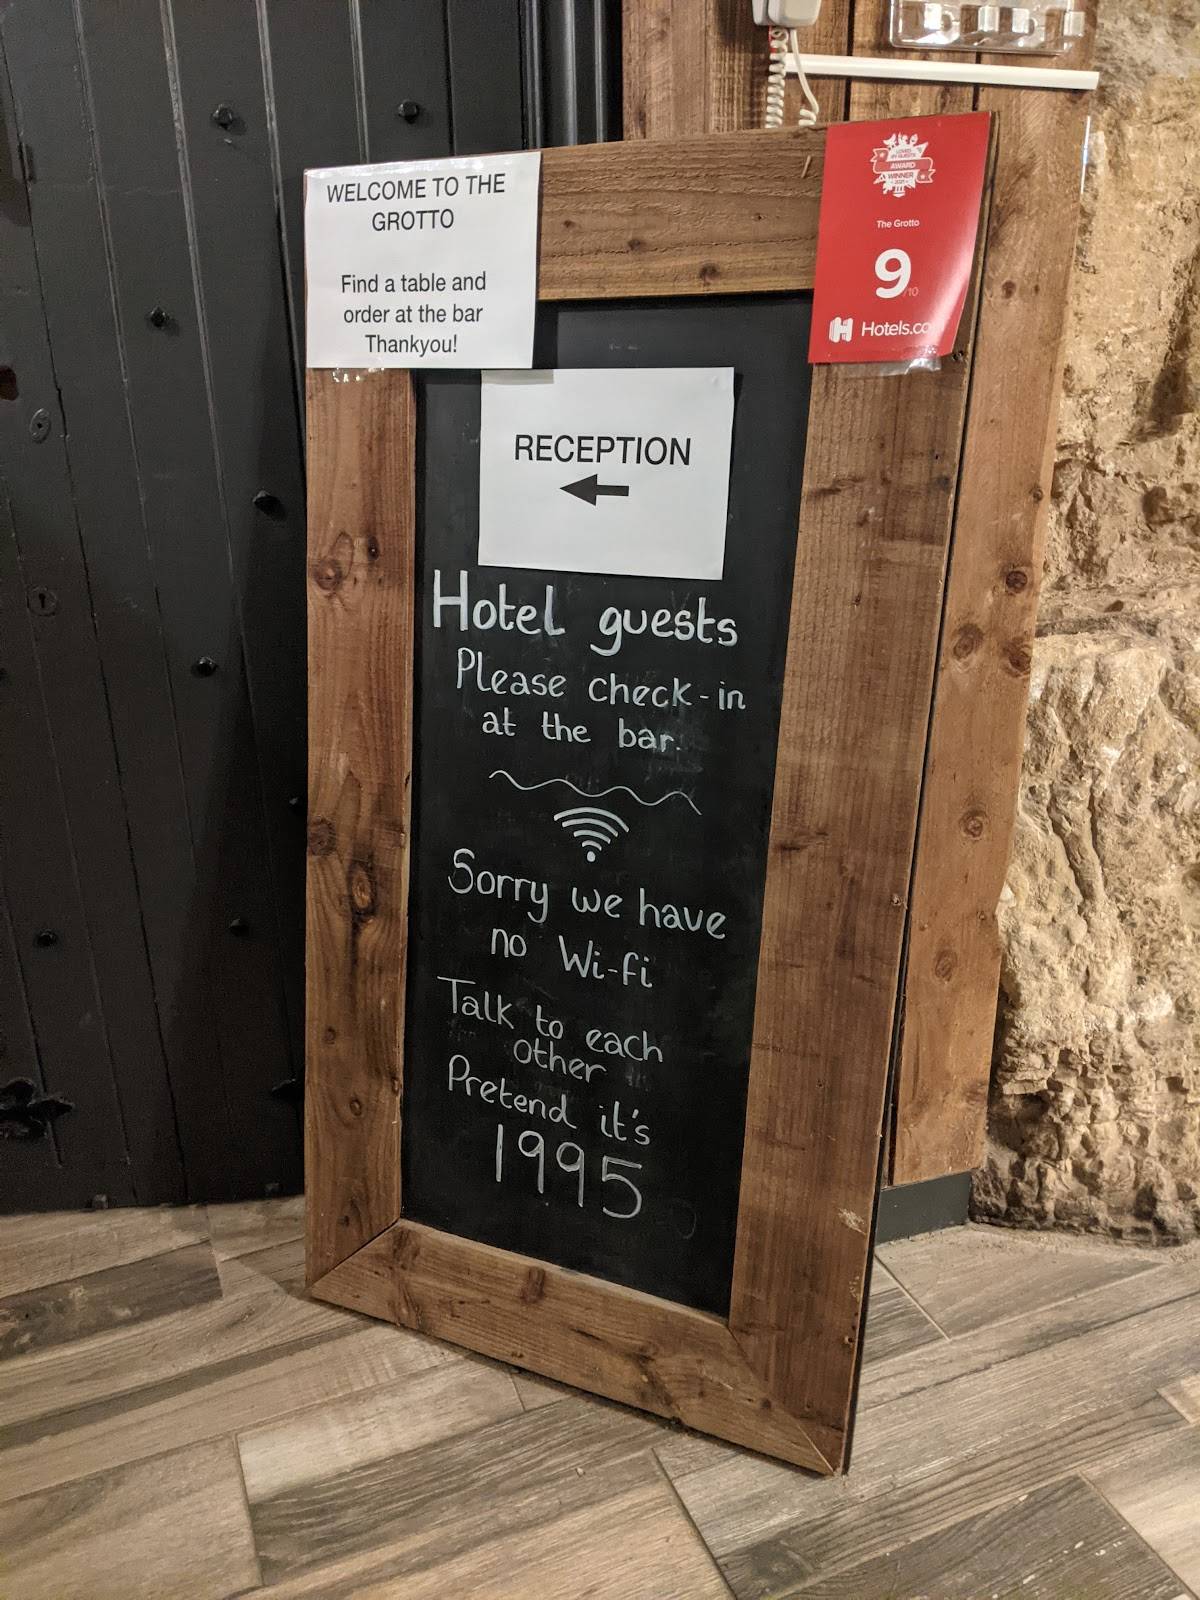 WELCOME TO THE
GROTTO
Find a table and
order at the bar
Thankyou!
LOVED
BY GUESTS
AWARD
WINNER
2021
The Grotto
9/10
Hotels.co
RECEPTION
Hotel guests
Please check-in
at the bar.
Sorry we have
no Wi-fi
Talk to each
other
Pretend it's
1995